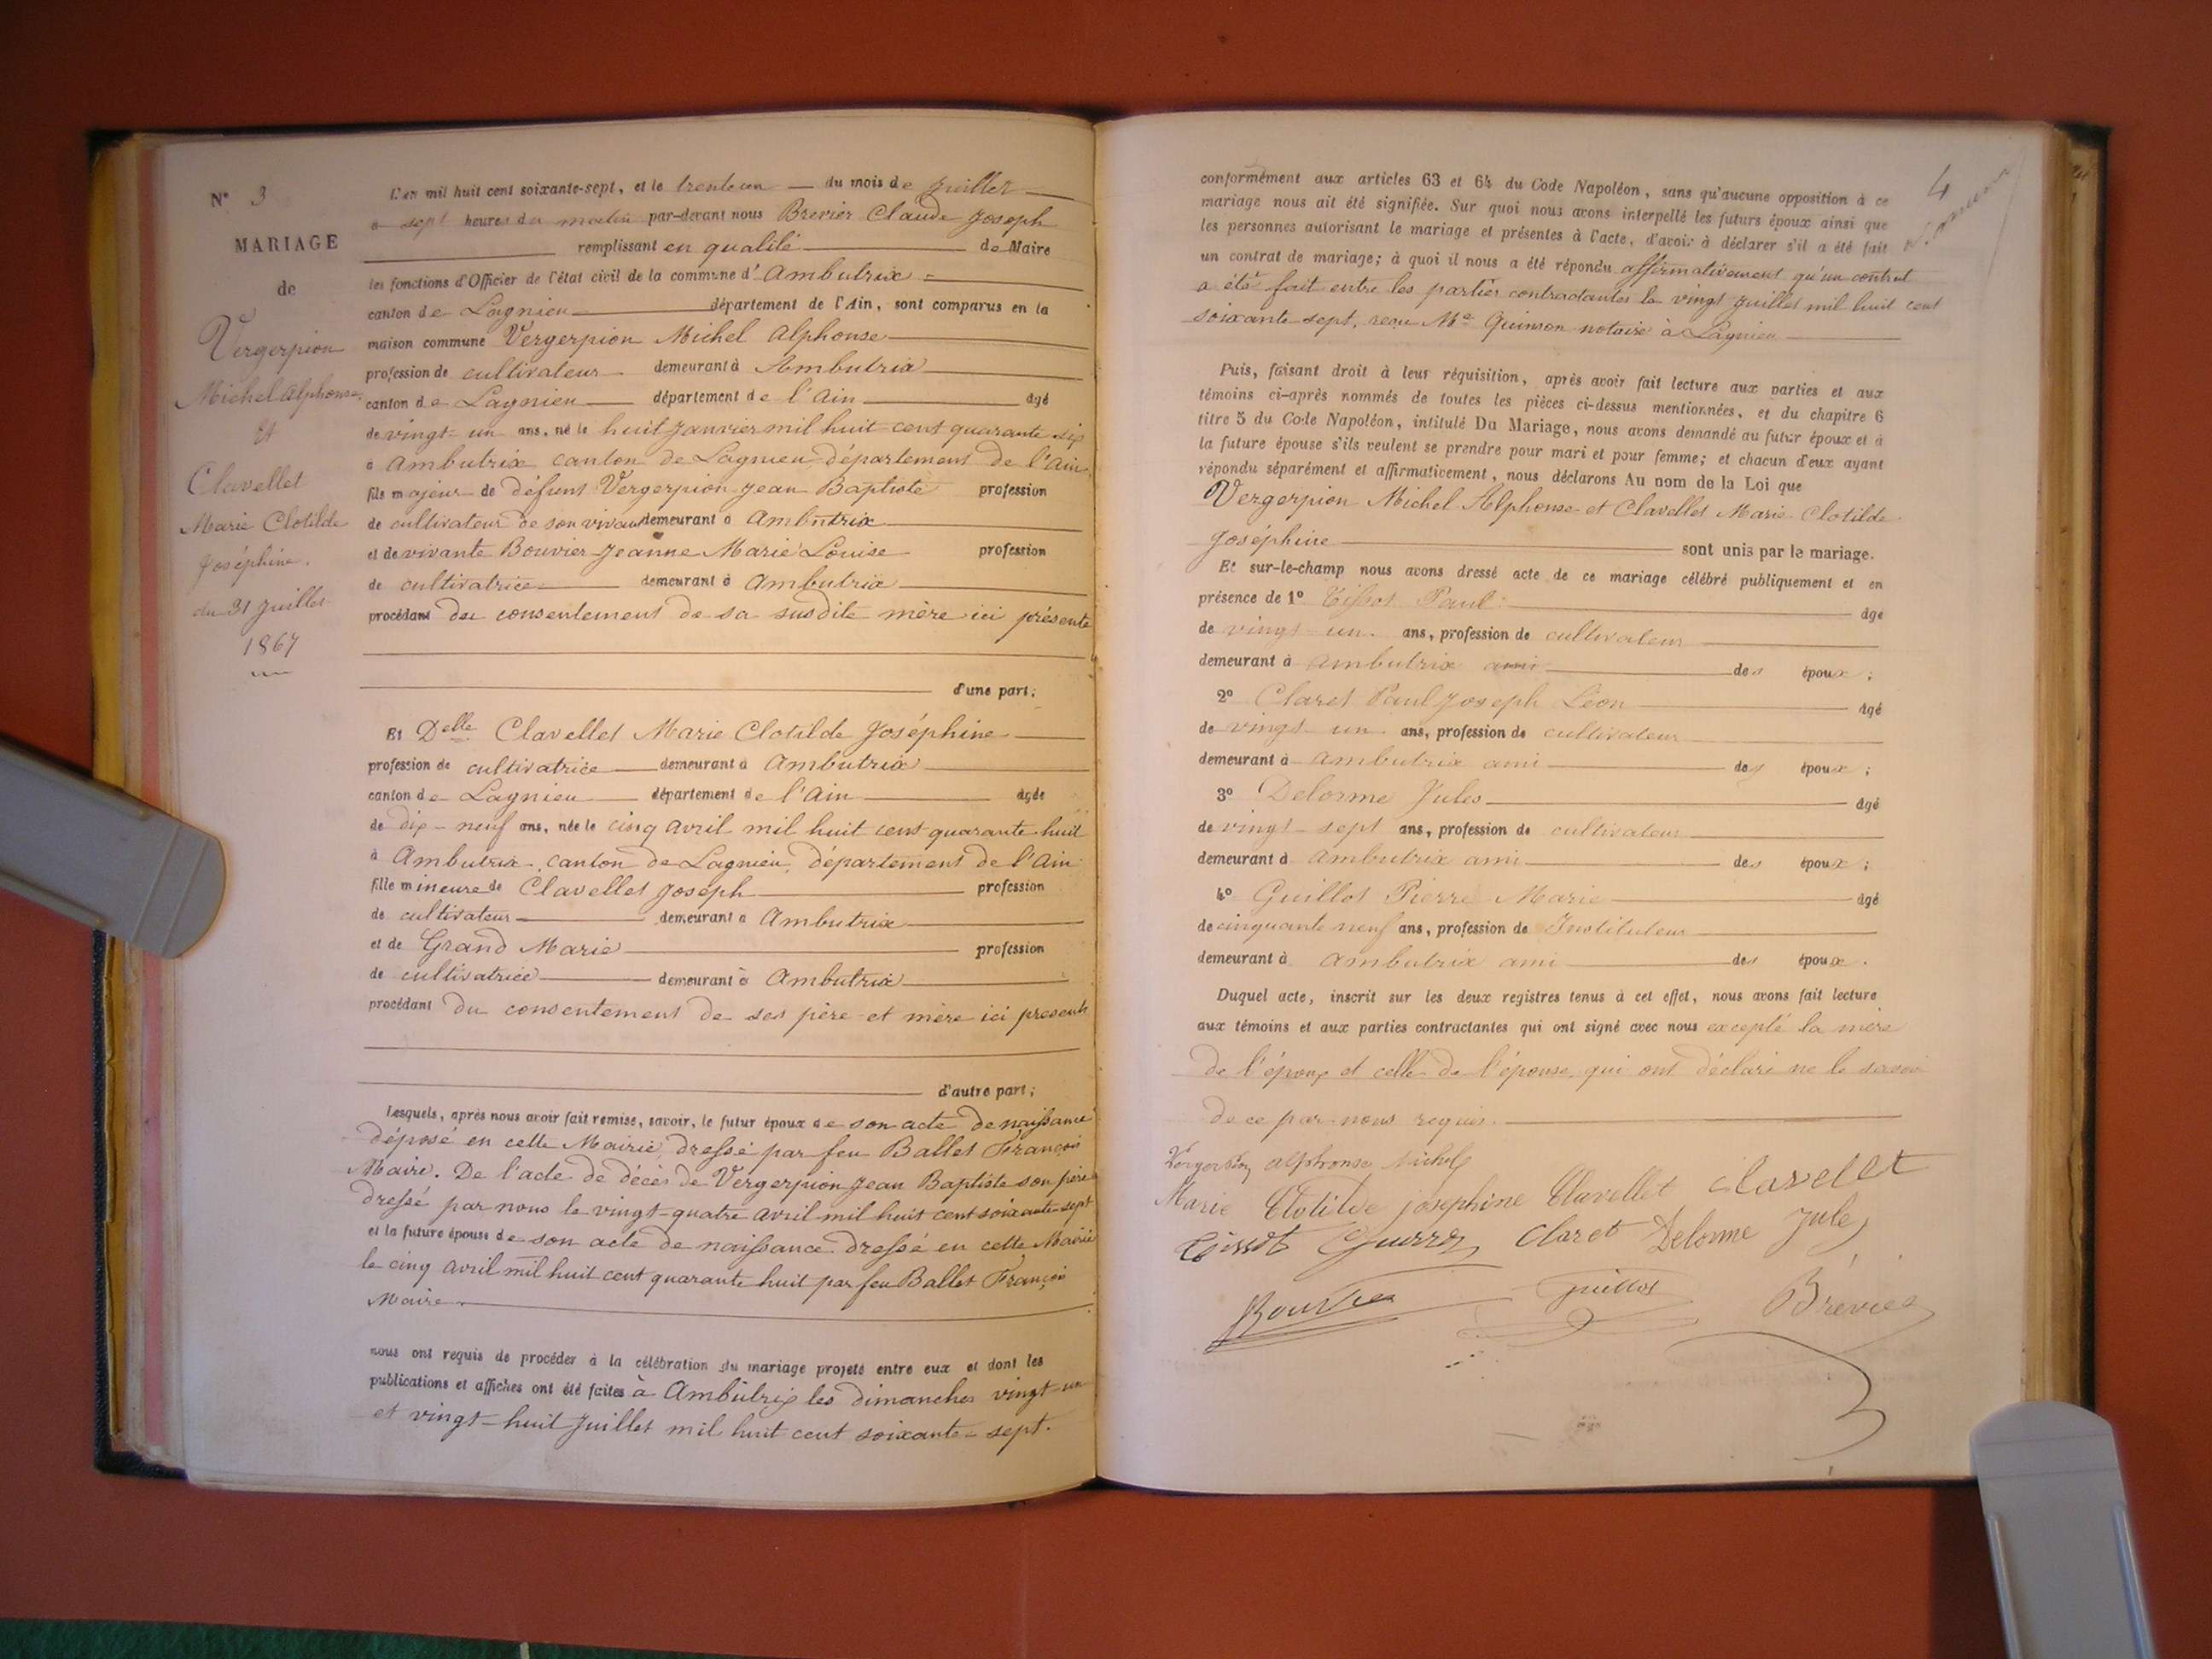 N° 3
MARIAGE
de
Vergerpion
Michel Alphonse
Et
Clavellet
Marie Clotilde
Joséphine.
du 31 Juillet
1867
L'an mil huit cent soixante-sept, et le trente un du mois de Juillet
à sept heures du matin par-devant nous Brevier Claude Joseph
remplissant en qualité de Maire
les fonctions d'Officier de l'état civil de la commune d'Ambutrix
canton de Lagnieu département de l'Ain, sont comparus en la
maison commune Vergerpion Michel Alphonse
profession de cultivateur demeurant à Ambutrix
canton de Lagnieu département de l'Ain âgé
de vingt-un ans, né le huit Janvier mil huit cent quarante six
à Ambutrix canton de Lagnieu département de l'Ain
fils majeur de défunt Vergerpion Jean Baptiste profession
de cultivateur de son vivant demeurant à Ambutrix
et de vivante Bouvier Jeanne Marie Louise profession
de cultivatrice demeurant à Ambutrix
procédant du consentement de sa susdite mère ici présente
d'une part;
Et Delle Clavellet Marie Clotilde Joséphine
profession de cultivatrice demeurant à Ambutrix
canton de Lagnieu département de l'Ain âgée
de dix-neuf ans, née le cinq avril mil huit cent quarante huit
à Ambutrix, canton de Lagnieu, département de l'Ain
fille mineure de Clavellet Joseph profession
de cultivateur demeurant à Ambutrix
et de Grand Marie profession
de cultivatrice demeurant à Ambutrix
procédant du consentement de ses père et mère ici présents
d'autre part;
Lesquels, après nous avoir fait remise, savoir, le futur époux de son acte de naissance
déposé en cette Mairie, dressé par feu Ballet François
Maire. De l'acte de décès de Vergerpion Jean Baptiste son père
dressé par nous le vingt-quatre avril mil huit cent soixante-sept
et la future épouse de son acte de naissance dressé en cette Mairie
le cinq avril mil huit cent quarante huit par feu Ballet François
Maire
nous ont requis de procéder à la célébration du mariage projeté entre eux et dont les
publications et affiches ont été faites à Ambutrix les dimanches vingt-un
et vingt-huit Juillet mil huit cent soixante-sept.
4
conformément aux articles 63 et 64 du Code Napoléon, sans qu'aucune opposition à ce
mariage nous ait été signifiée. Sur quoi nous avons interpellé les futurs époux ainsi que
les personnes autorisant le mariage et présentes à l'acte, d'avoir à déclarer s'il a été fait
un contrat de mariage; à quoi il nous a été répondu affirmativement qu'un contrat
a été fait entre les parties contractantes le vingt Juillet mil huit cent
soixante-sept, reçu Me Quinson notaire à Lagnieu
Puis, faisant droit à leur réquisition, après avoir fait lecture aux parties et aux
témoins ci-après nommés de toutes les pièces ci-dessus mentionnées, et du chapitre 6
titre 5 du Code Napoléon, intitulé Du Mariage, nous avons demandé au futur époux et à
la future épouse s'ils veulent se prendre pour mari et pour femme; et chacun d'eux ayant
répondu séparément et affirmativement, nous déclarons Au nom de la Loi que
Vergerpion Michel Alphonse et Clavellet Marie Clotilde
Joséphine sont unis par le mariage.
Et sur-le-champ nous avons dressé acte de ce mariage célébré publiquement et en
présence de 1° Tissot Paul âgé
de vingt-un ans, profession de cultivateur
demeurant à Ambutrix ami des époux;
2° Claret Paul Joseph Léon âgé
de vingt-un ans, profession de cultivateur
demeurant à Ambutrix ami des époux;
3° Delorme Jules âgé
de vingt-sept ans, profession de cultivateur
demeurant à Ambutrix ami des époux;
4° Guillot Pierre Marie âgé
de cinquante neuf ans, profession de Instituteur
demeurant à Ambutrix ami des époux.
Duquel acte, inscrit sur les deux registres tenus à cet effet, nous avons fait lecture
aux témoins et aux parties contractantes qui ont signé avec nous excepté la mère
de l'époux et celle de l'épouse, qui ont déclaré ne le savoir
de ce par nous requis.
Vergerpion Alphonse Michel
Marie Clotilde josephine Clavellet Clavellet
Tissot Claret Delorme Jules
Bouvier Guillot Brevier